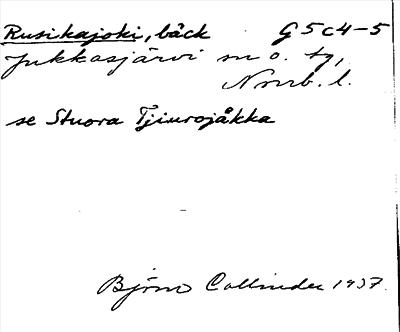 Rusikajoki, bäck G5c4-5
Jukkasjärvi sn o. tg,
Nrrb. l.
se Stuora Tjiurojåkka
Björn Collinder 1937.